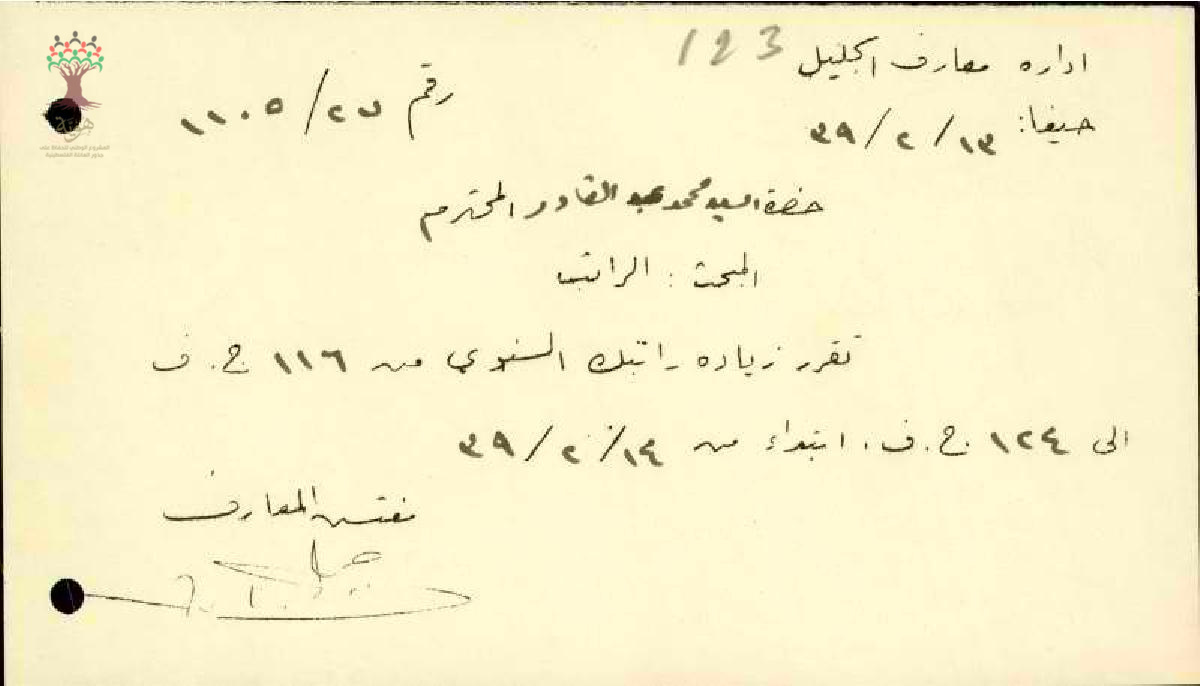 123
اداره معارف الجليل
حيفا: ١٣/٢/٣٩
رقم ٢٧/١١٠٥
حضرة السيد محمد عبد القادر المحترم
المبحث: الراتب
تقرر زياده راتبك السنوي من ١١٦ ج. ف
الى ١٢٤ ج. ف. ابتداء من ١٤/٢/٣٩
مفتش المعارف
هوية
المشروع الوطني للحفاظ على
جذور العائلة الفلسطينية